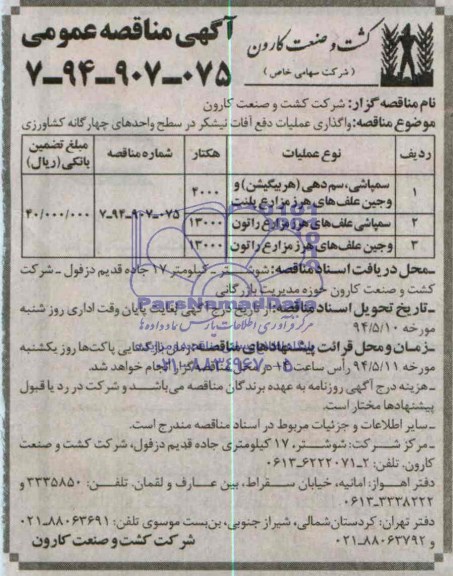 آگهی مناقصه عمومی
۷ـ۹۴ـ۹۰۷ـ۰۷۵
کشت و صنعت کارون
( شرکت سهامی خاص )
نام مناقصه گزار: شرکت کشت و صنعت کارون
موضوع مناقصه: واگذاری عملیات دفع آفات نیشکر در سطح واحدهای چهارگانه کشاورزی
ردیف نوع عملیات هکتار شماره مناقصه مبلغ تضمین بانکی (ریال)
۱ سمپاشی، سم دهی (هربیگیشن) و وجین علف‌های هرز مزارع پلنت ۲۰۰۰ ۷ـ۹۴ـ۹۰۷ـ۰۷۵ ۴۰/۰۰۰/۰۰۰
۲ سمپاشی علف‌های هرز مزارع راتون ۱۳۰۰۰
۳ وجین علف‌های هرز مزارع راتون ۱۳۰۰۰
ـ محل دریافت اسناد مناقصه: شوشتـر ـ کیلومتر ۱۷ جاده قدیم دزفول ـ شرکت
کشت و صنعت کارون حوزه مدیریت بازرگانی
ـ تاریخ تحویل اسناد مناقصه: از تاریخ درج آگهی لغایت پایان وقت اداری روز شنبه
مورخه ۹۴/۵/۱۰
ـ زمان و محل قرائت پیشنهادهای مناقصه: زمان بازگشایی پاکت‌ها روز یکشنبه
مورخه ۹۴/۵/۱۱ رأس ساعت ۱۰ در محل مناقصه‌گزار انجام خواهد شد.
ـ هزینه درج آگهی روزنامه به عهده برندگان مناقصه می‌باشد و شرکت در رد یا قبول
پیشنهادها مختار است.
ـ سایر اطلاعات و جزئیات مربوط در اسناد مناقصه مندرج است.
ـ مرکز شرکت: شوشتر، ۱۷ کیلومتری جاده قدیم دزفول، شرکت کشت و صنعت
کارون. تلفن: ۲ـ۶۲۲۲۰۷۱ـ۰۶۱۳
دفتر اهواز: امانیه، خیابان سقراط، بین عارف و لقمان. تلفن: ۳۳۳۵۸۵۰ و
۰۶۱۳ـ۳۳۳۸۲۲۲
دفتر تهران: کردستان شمالی، شیراز جنوبی، بن‌بست موسوی تلفن: ۸۸۰۶۳۶۹۱ـ۰۲۱
و ۸۸۰۶۳۷۹۲ـ۰۲۱
شرکت کشت و صنعت کارون
ParsNamadData
مرکز فرآوری اطلاعات پارس نماد داده‌ها
۰۲۱-۸۸۳۴۹۶۷۰-۵